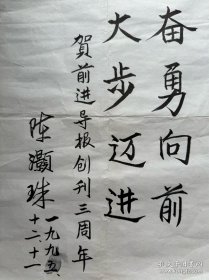 奋勇向前
大步迈进
贺前进导报创刊三周年
陈灏珠
一九九五、
十二、十一